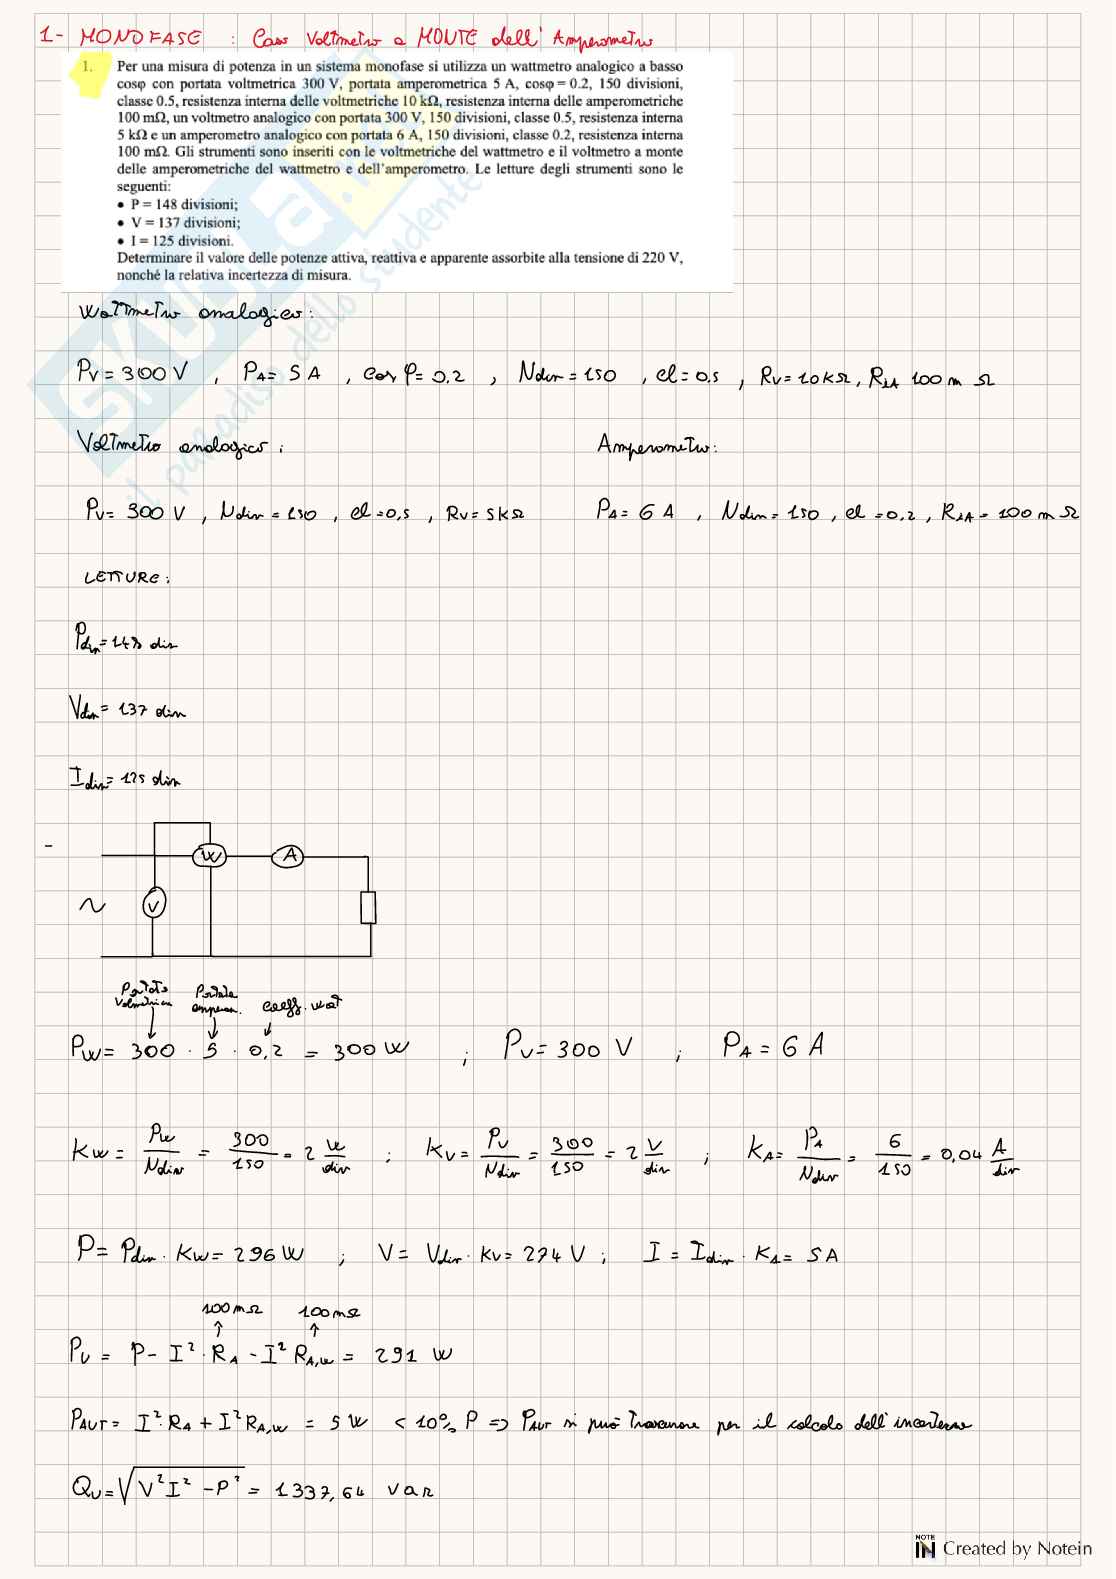 1- MONOFASE : Caso Voltmetro a MONTE dell'Amperometro
1. Per una misura di potenza in un sistema monofase si utilizza un wattmetro analogico a basso
cosφ con portata voltmetrica 300 V, portata amperometrica 5 A, cosφ = 0.2, 150 divisioni,
classe 0.5, resistenza interna delle voltmetriche 10 kΩ, resistenza interna delle amperometriche
100 mΩ, un voltmetro analogico con portata 300 V, 150 divisioni, classe 0.5, resistenza interna
5 kΩ e un amperometro analogico con portata 6 A, 150 divisioni, classe 0.2, resistenza interna
100 mΩ. Gli strumenti sono inseriti con le voltmetriche del wattmetro e il voltmetro a monte
delle amperometriche del wattmetro e dell'amperometro. Le letture degli strumenti sono le
seguenti:
• P = 148 divisioni;
• V = 137 divisioni;
• I = 125 divisioni.
Determinare il valore delle potenze attiva, reattiva e apparente assorbite alla tensione di 220 V,
nonché la relativa incertezza di misura.
Wattmetro analogico:
PV = 300 V , PA = 5 A , cos φ = 0.2 , Ndiv = 150 , cl = 0,5 , RV = 10 kΩ , RiA 100 m Ω
Voltmetro analogico : Amperometro:
PV = 300 V , Ndiv = 150 , cl = 0,5 , RV = 5 kΩ PA = 6 A , Ndiv = 150 , cl = 0,2 , RiA = 100 m Ω
LETTURE :
Pdiv = 148 div
Vdiv = 137 div
Idiv = 125 div
-
W A
~ V
Portata Voltmetrica Portata amperom. coeff. wat
PW = 300 · 5 · 0,2 = 300 W ; PV = 300 V ; PA = 6 A
KW = PW / Ndiv = 300 / 150 = 2 W / div ; KV = PV / Ndiv = 300 / 150 = 2 V / div ; KA = PA / Ndiv = 6 / 150 = 0,04 A / div
P = Pdiv · KW = 296 W ; V = Vdiv · KV = 274 V ; I = Idiv · KA = 5 A
100 mΩ 100 mΩ
PU = P - I² · RA - I² RA,W = 291 W
PAUT = I² · RA + I² RA,W = 5 W < 10% P => PAUT si può trascurare per il calcolo dell'incertezza
QU = √V² I² - P² = 1337,64 var
NOTE IN Created by Notein
SKUOLA.NET
il paradiso dello studente